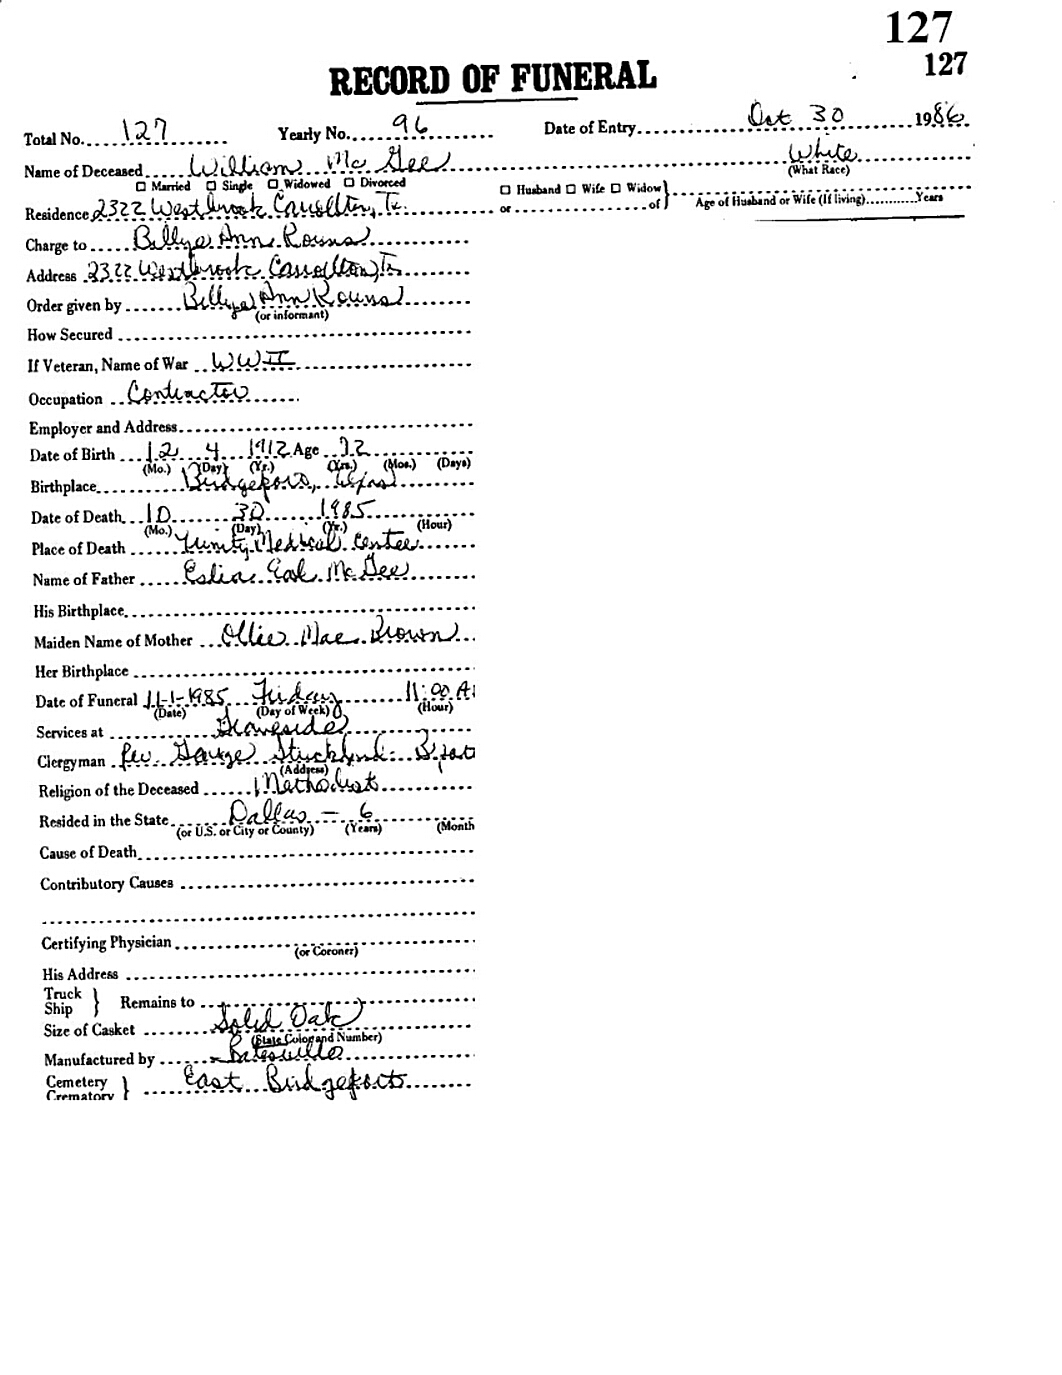 127
127
RECORD OF FUNERAL
Total No. 127 Yearly No. 96 Date of Entry Oct 30 1986
Name of Deceased William Mc Gee White
(What Race)
☐ Married ☐ Single ☐ Widowed ☐ Divorced ☐ Husband ☐ Wife ☐ Widow
Residence 2322 Westbrook Carrollton, Tx. or of Age of Husband or Wife (If living) Years
Charge to Billye Ann Rouns
Address 2322 Westbrook Carrollton, Tx
Order given by Billye Ann Rouns
(or informant)
How Secured
If Veteran, Name of War WWII
Occupation Contractor
Employer and Address
Date of Birth 12 4 1912 Age 72
(Mo.) (Day) (Yr.) (Yrs.) (Mos.) (Days)
Birthplace Bridgeport, Texas
Date of Death 10 30 1985
(Mo.) (Day) (Yr.) (Hour)
Place of Death Trinity Medical Center
Name of Father Eslia Earl McGee
His Birthplace
Maiden Name of Mother Ollie Mae Brown
Her Birthplace
Date of Funeral 11-1-1985 Friday 11:00 A
(Date) (Day of Week) (Hour)
Services at Graveside
Clergyman Rev. George
(Address)
Religion of the Deceased Methodist
Resided in the State Dallas - 6
(or U.S. or City or County) (Years) (Month
Cause of Death
Contributory Causes
Certifying Physician
(or Coroner)
His Address
Truck
Ship Remains to
Size of Casket Solid Oak
(State Color and Number)
Manufactured by Batesville
Cemetery
Crematory East Bridgeport